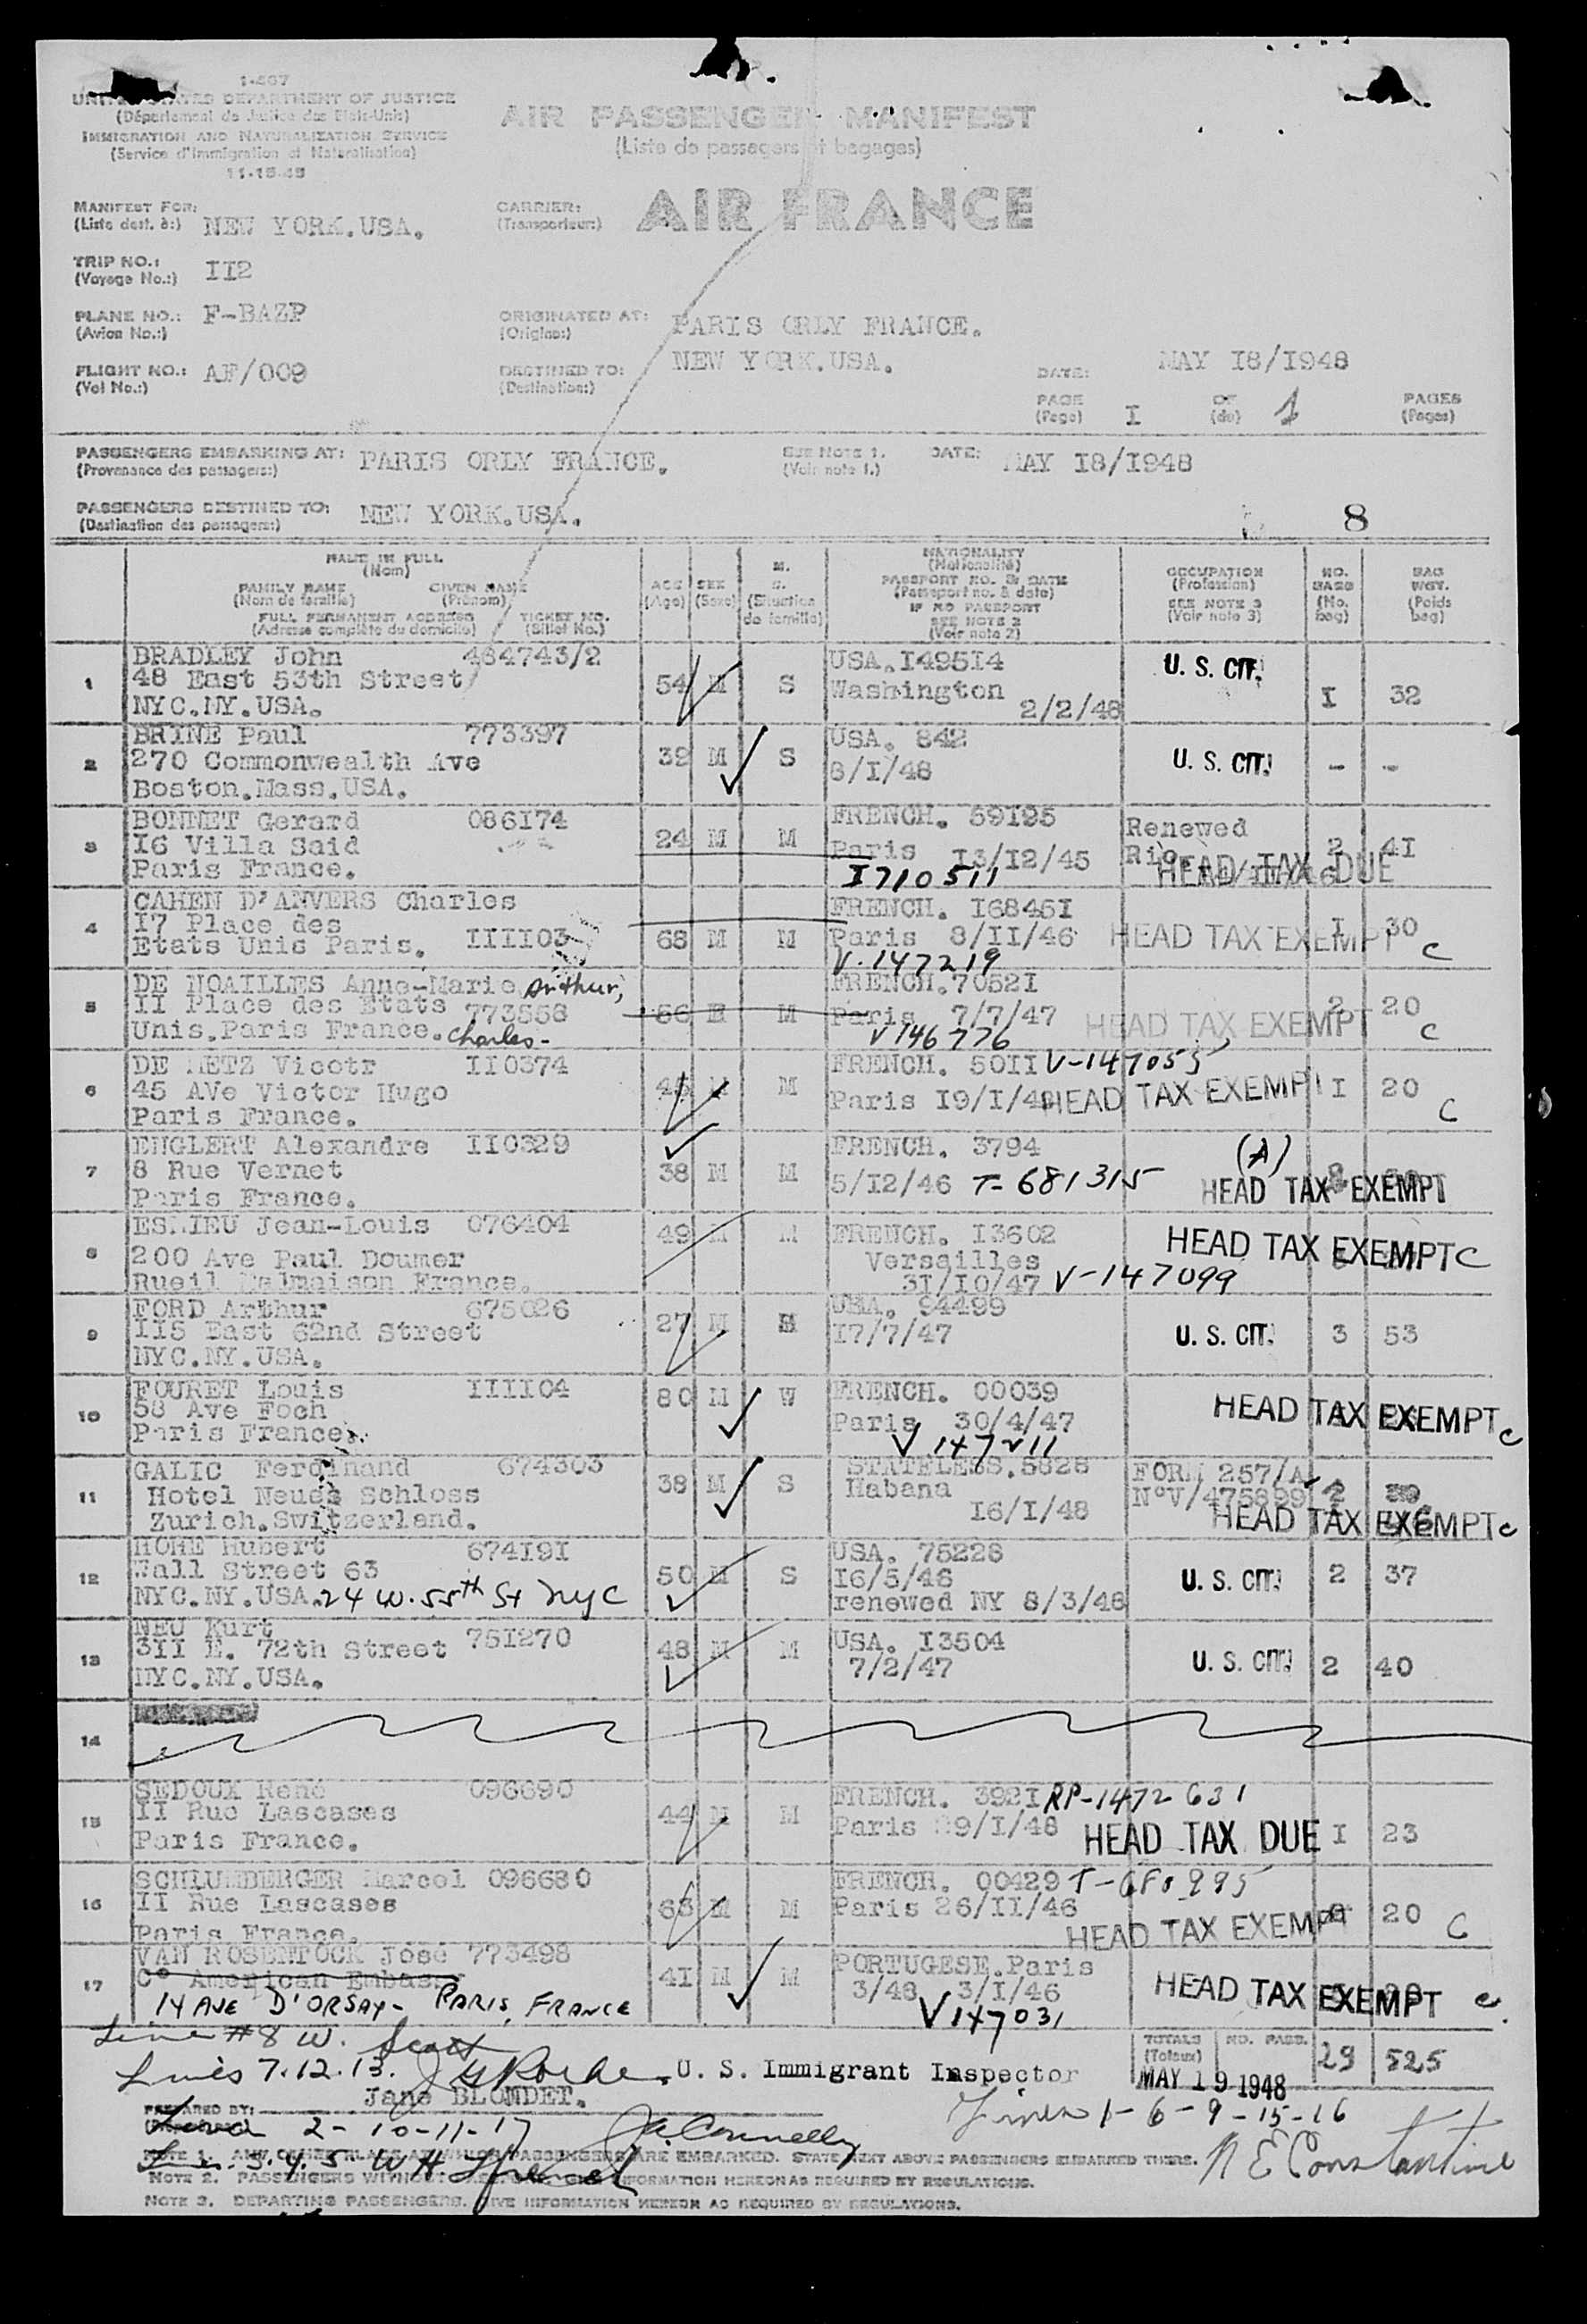 1-467
UNITED STATES DEPARTMENT OF JUSTICE
(Département de Justice des Etats-Unis)
IMMIGRATION AND NATURALIZATION SERVICE
(Service d'Immigration et Naturalisation)
11-15-45
AIR PASSENGER MANIFEST
(Liste de passagers et bagages)
MANIFEST FOR: NEW YORK.USA.
(Liste dest. à:)
CARRIER: AIR FRANCE
(Transporteur:)
TRIP NO.: II2
(Voyage No.:)
PLANE NO.: F-BAZP
(Avion No.:)
ORIGINATED AT: PARIS ORLY FRANCE.
(Origine:)
FLIGHT NO.: AF/009
(Vol No.:)
DESTINED TO: NEW YORK.USA.
(Destination:)
DATE: MAY I8/I948
PAGE I OF 1 PAGES
(Page) (de) (Pages)
PASSENGERS EMBARKING AT: PARIS ORLY FRANCE.
(Provenance des passagers:)
SEE NOTE 1. DATE: MAY I8/I948
(Voir note 1.)
PASSENGERS DESTINED TO: NEW YORK.USA.
(Destination des passagers:)
8
NAME IN FULL
(Nom)
FAMILY NAME GIVEN NAME
(Nom de famille) (Prénom)
FULL PERMANENT ADDRESS TICKET NO.
(Adresse complète du domicile) (Billet No.)
AGE
(Age)
SEX
(Sexe)
M.
S.
(Situation
de famille)
NATIONALITY
(Nationalité)
PASSPORT NO. & DATE
(Passeport no. & date)
IF NO PASSPORT
SEE NOTE 2
(Voir note 2)
OCCUPATION
(Profession)
SEE NOTE 3
(Voir note 3)
NO.
BAGS
(No.
bag)
BAG
WGT.
(Poids
bag)
1 BRADLEY John 464743/2
48 East 53th Street
NYC.NY.USA.
54 M S
USA.I495I4
Washington
2/2/48
U. S. CIT. I 32
2 BRINE Paul 773397
270 Commonwealth Ave
Boston.Mass.USA.
39 M S
USA. 842
8/I/48
U. S. CIT. - -
3 BONNET Gerard 086I74
I6 Villa Said
Paris France.
24 M M
FRENCH. 59I95
Paris I3/I2/45
I710511
Renewed
Rio
HEAD TAX DUE
2 4I
4 CAHEN D'ANVERS Charles
I7 Place des
Etats Unis Paris. IIII03
68 M M
FRENCH. I6845I
Paris 8/II/46
V.147219
HEAD TAX EXEMPT I 30 C
5 DE NOAILLES Anne-Marie Arthur,
II Place des Etats 773558
Unis.Paris France. Charles-
66 F M
FRENCH.7052I
Paris 7/7/47
V146776
HEAD TAX EXEMPT 2 20 C
6 DE METZ Vicotr II0374
45 AVe Victor Hugo
Paris France.
45 M M
FRENCH. 50II V-147055
Paris I9/I/48
HEAD TAX EXEMPT I 20 C
7 ENGLERT Alexandre II0329
8 Rue Vernet
Paris France.
38 M M
FRENCH. 3794
5/I2/46 T-681315
(A)
HEAD TAX EXEMPT
8 ESMIEU Jean-Louis 076404
200 Ave Paul Doumer
Rueil Malmaison France.
49 M M
FRENCH. I3602
Versailles
3I/I0/47 V-147099
HEAD TAX EXEMPT C
9 FORD Arthur 675026
II5 East 62nd Street
NYC.NY.USA.
27 M
USA. 94499
I7/7/47
U. S. CIT. 3 53
10 FOURET Louis IIII04
58 Ave Foch
Paris France.
80 M W
FRENCH. 00039
Paris 30/4/47
V 147211
HEAD TAX EXEMPT C
11 GALIC Ferdinand 674303
Hotel Neues Schloss
Zurich.Switzerland.
38 M S
STATELESS.5828
Habana
I6/I/48
FORM 257/A
N°V/475899 2
HEAD TAX EXEMPT C
12 HOHE Hubert 674I9I
Wall Street 63
NYC.NY.USA. 24 W. 55th St NYC
50 M S
USA. 75228
I6/5/46
renewed NY 8/3/48
U. S. CIT. 2 37
13 NEU Kurt
3II E. 72th Street 75I270
NYC.NY.USA.
48 M M
USA. I3504
7/2/47
U. S. CIT. 2 40
14
15 SEDOUX René 096690
II Rue Lascases
Paris France.
44 M M
FRENCH. 392I RP-1472631
Paris 29/I/48
HEAD TAX DUE I 23
16 SCHLUMBERGER Marcel 096680
II Rue Lascases
Paris France.
63 M M
FRENCH. 00429 T-680995
Paris 26/II/46
HEAD TAX EXEMPT 20 C
17 VAN ROSENTOCK José 773498
C° American Embassy
14 AVE D'ORSAY- PARIS, FRANCE
4I M M
PORTUGESE.Paris
3/48 3/I/46
V147031
HEAD TAX EXEMPT C
Line #8 W. Scott
Lines 7.12.13. U. S. Immigrant Inspector
TOTALS NO. PASS. 29 525
(Totaux)
MAY 19 1948
Jane BLONDET.
PREPARED BY:
Lines 1-6-9-15-16
Lines 2-10-11-17 J.A. Connelly
3.4.5- W H
N E Constantine
PASSENGERS ARE EMBARKED. STATE NEXT ABOVE PASSENGERS EMBARKED THERE.
NOTE 2. PASSENGERS WITHOUT INFORMATION HEREON AS REQUIRED BY REGULATIONS.
NOTE 3. DEPARTING PASSENGERS. GIVE INFORMATION HEREON AS REQUIRED BY REGULATIONS.